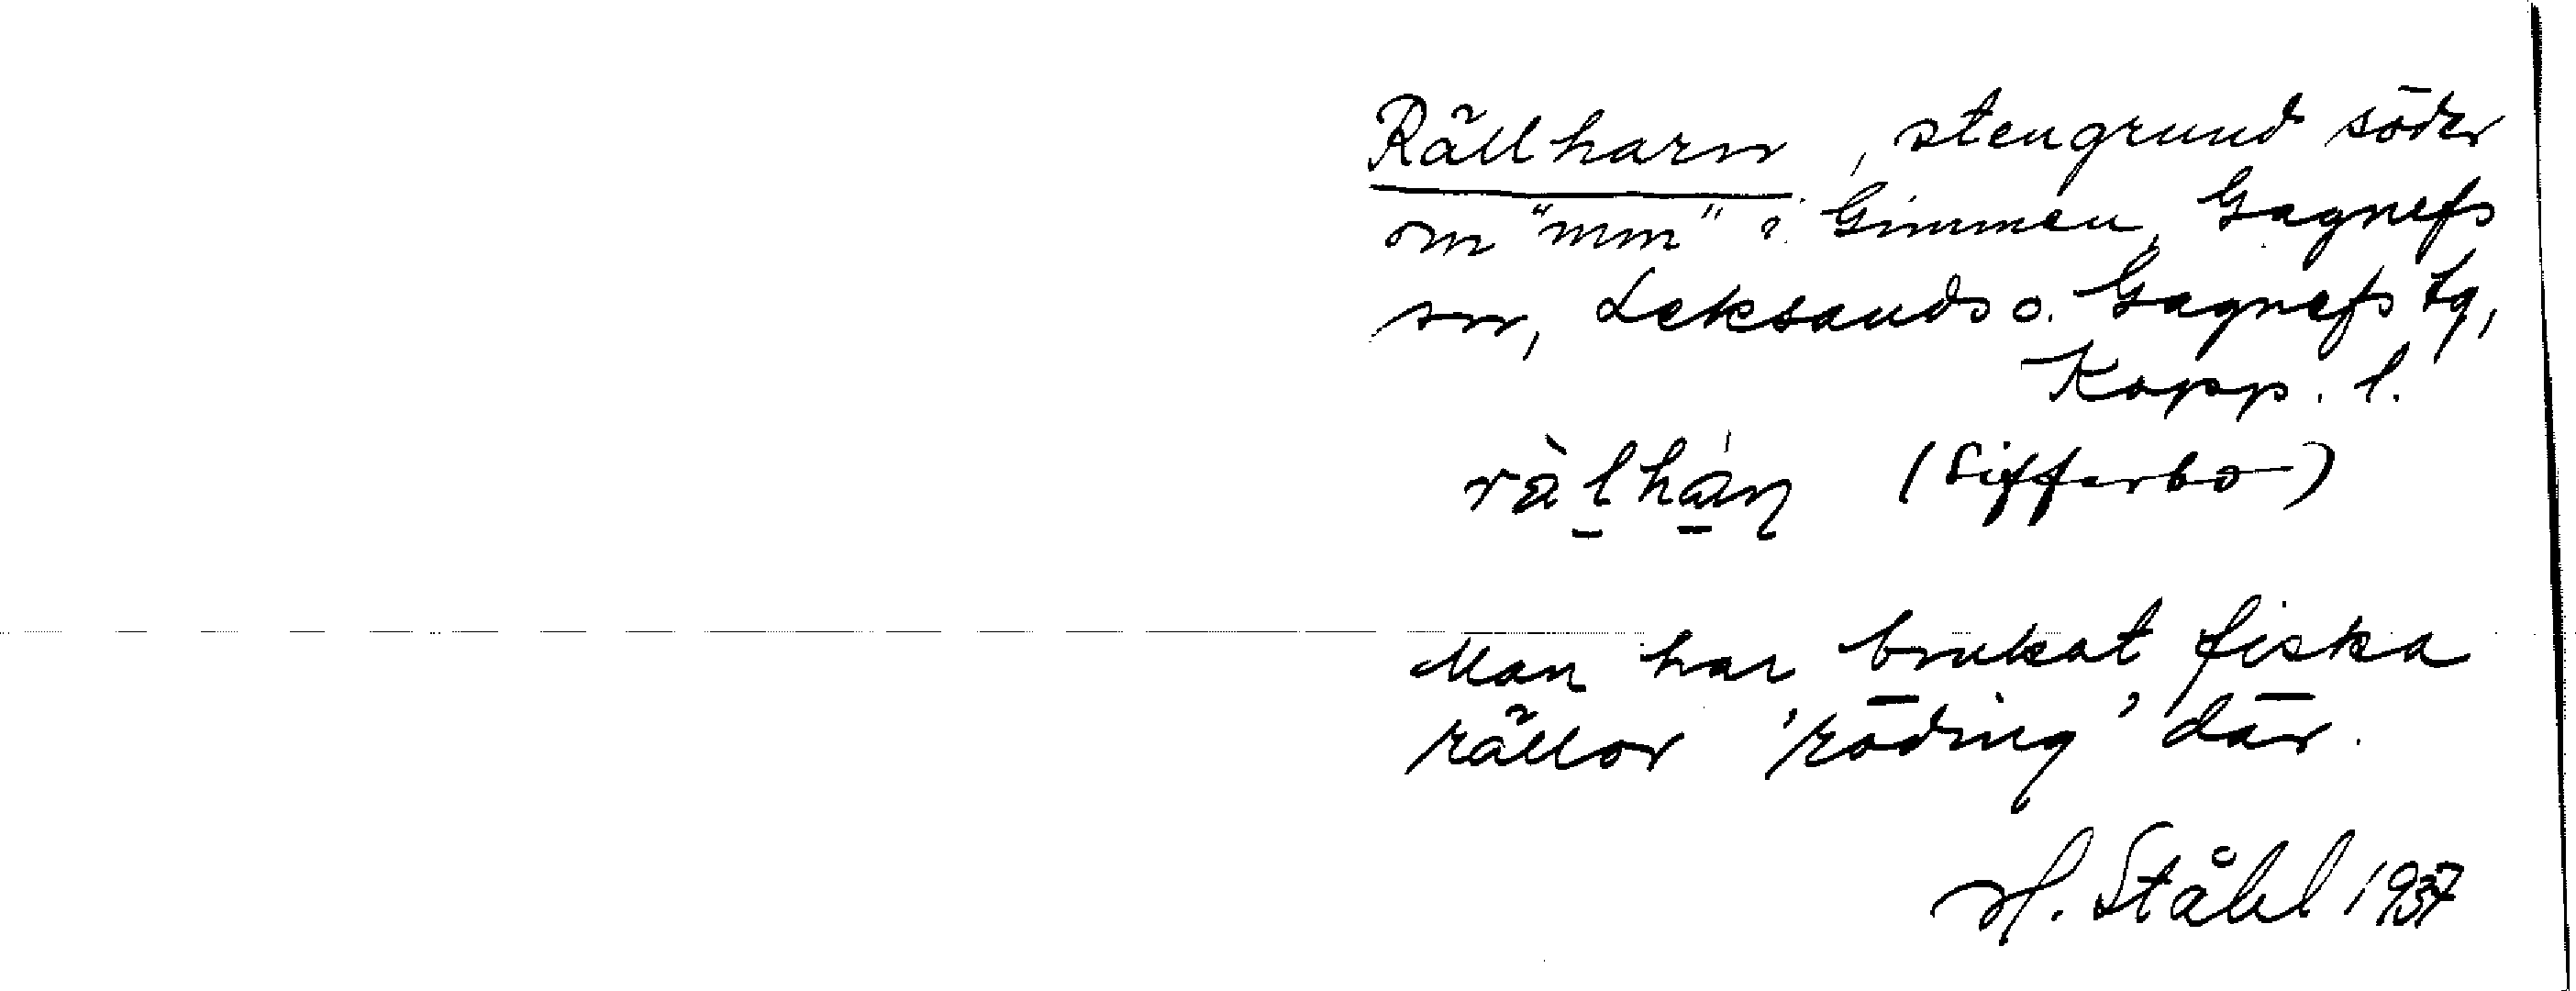 Rällharn, stengrund söder
om "mm" i Gimmen, Gagnefs
sn, Leksands o. Gagnefs tg,
Kopp. l.
rä̀l̠há̠ṇ (Sifferbo)
Man har brukat fiska
rällor 'röding' där.
H. Ståhl 1937